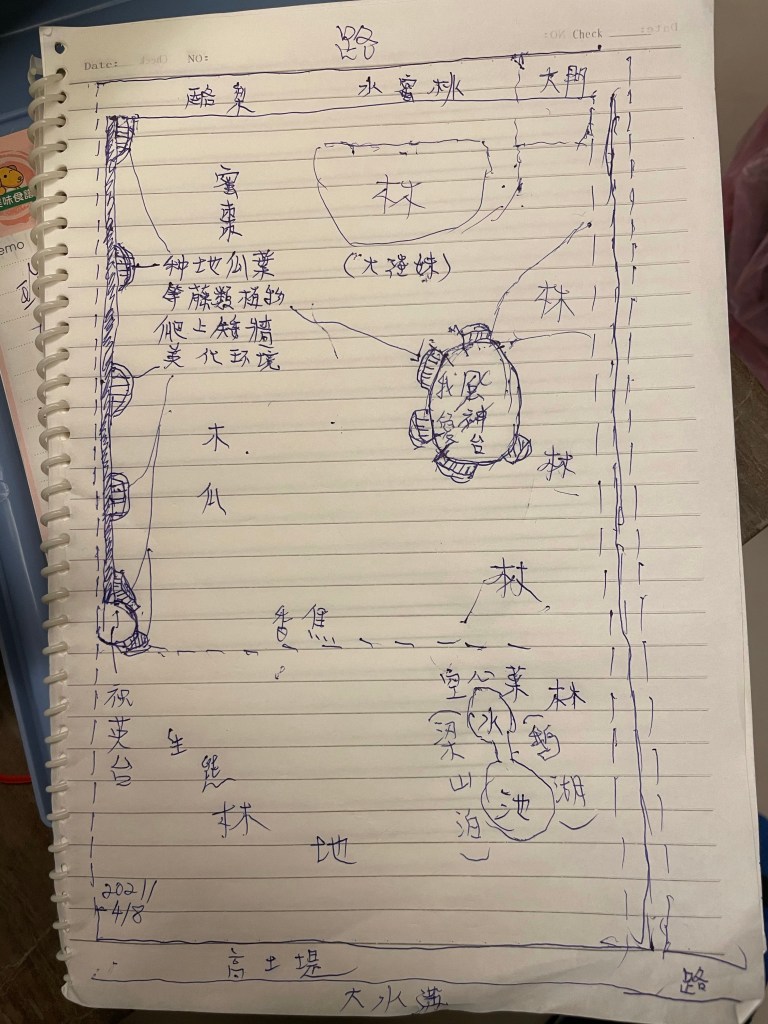 路
Date:
NO:
Check
酪梨
水蜜桃
大門
蜜棗
林
(大強妹)
种地瓜葉
等藤類植物
爬上矮牆
美化环境
林
風神台
我愛
木瓜
林
林
香焦
空心菜
林
水池
(梁山泊)
(鵝湖)
祝英台
生態林地
2021/
4/8
高土堤
路
大水溝
味食譜
emo